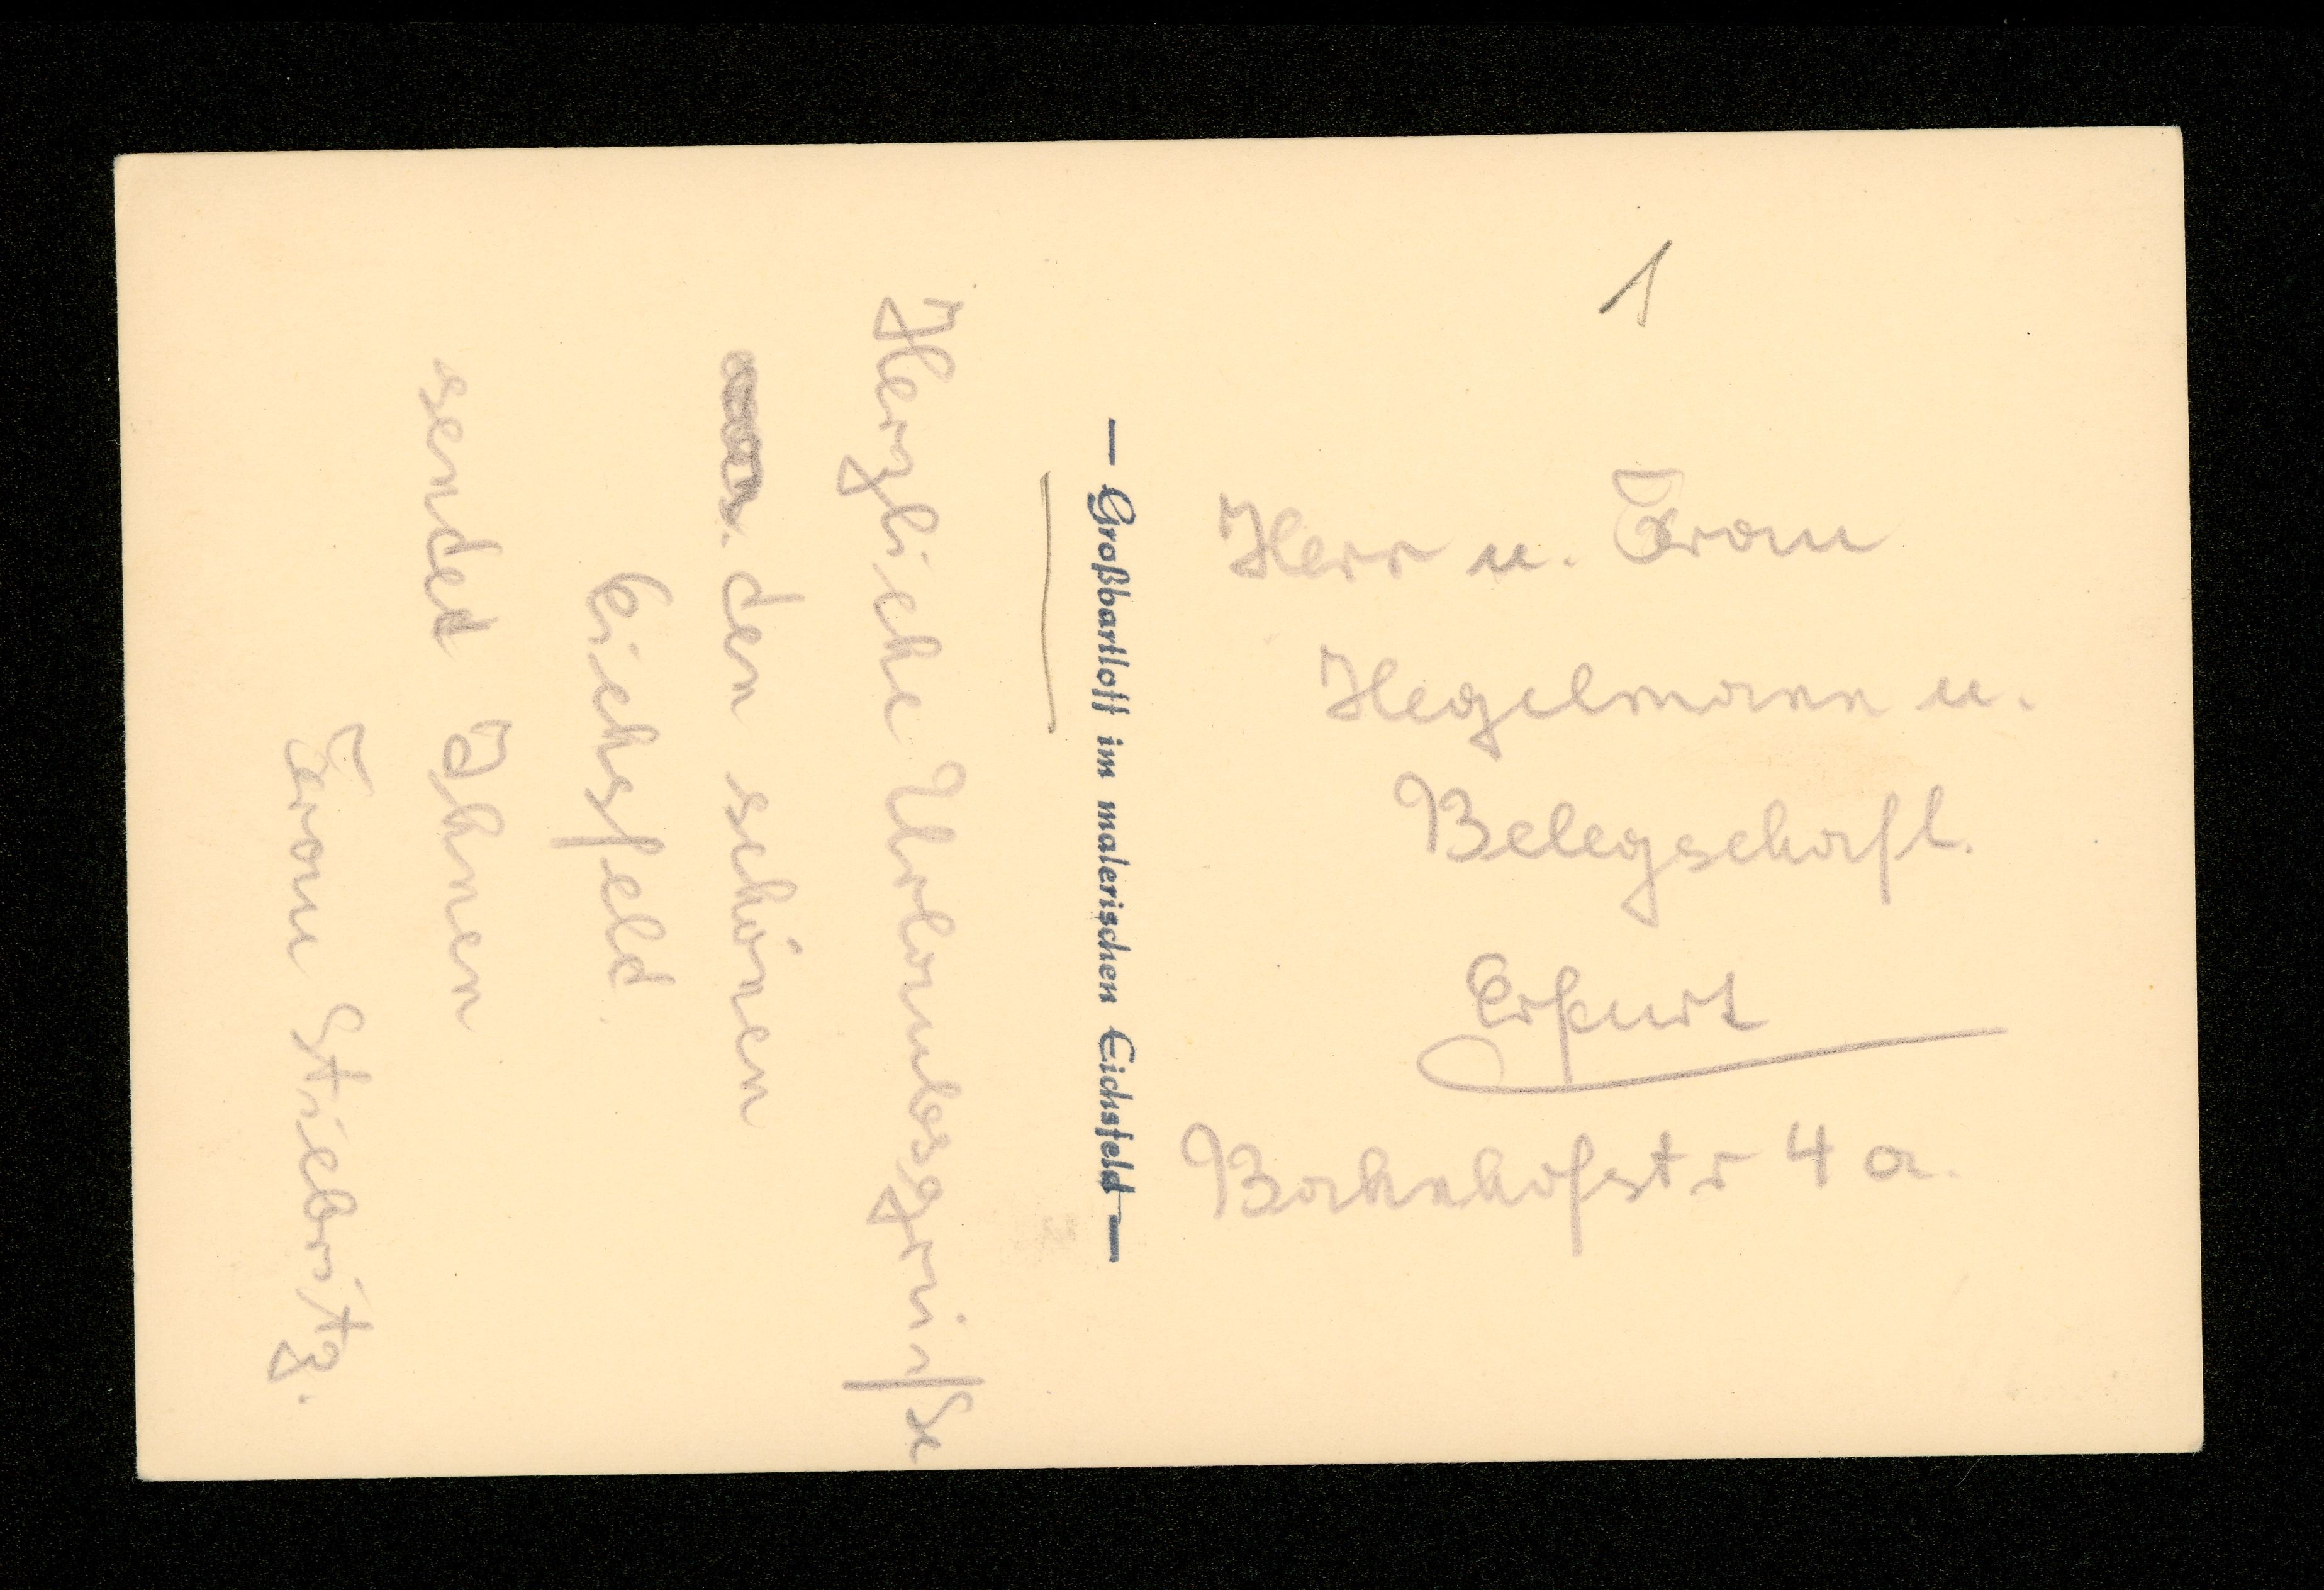 Herzliche Urlaubsgrüsse
den schönen
Eichsfeld
sendet Ihnen
Frau Stiebritz.
— Großbartloff im malerischen Eichsfeld —
1
Herr u. Frau
Hegelmann u.
Belegschaft.
Erfurt
Bahnhofstr 4 a.